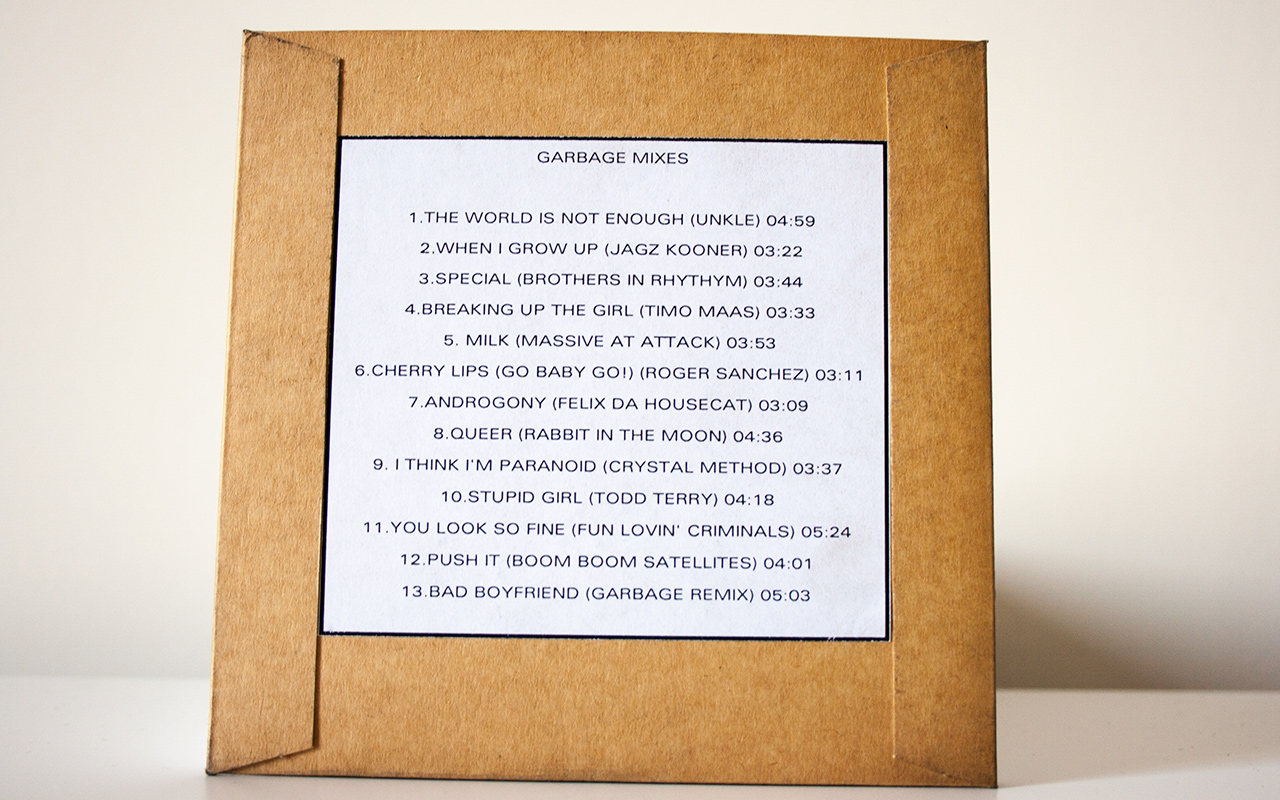 GARBAGE MIXES
1.THE WORLD IS NOT ENOUGH (UNKLE) 04:59
2.WHEN I GROW UP (JAGZ KOONER) 03:22
3.SPECIAL (BROTHERS IN RHYTHYM) 03:44
4.BREAKING UP THE GIRL (TIMO MAAS) 03:33
5. MILK (MASSIVE AT ATTACK) 03:53
6.CHERRY LIPS (GO BABY GO!) (ROGER SANCHEZ) 03:11
7.ANDROGONY (FELIX DA HOUSECAT) 03:09
8.QUEER (RABBIT IN THE MOON) 04:36
9. I THINK I'M PARANOID (CRYSTAL METHOD) 03:37
10.STUPID GIRL (TODD TERRY) 04:18
11.YOU LOOK SO FINE (FUN LOVIN' CRIMINALS) 05:24
12.PUSH IT (BOOM BOOM SATELLITES) 04:01
13.BAD BOYFRIEND (GARBAGE REMIX) 05:03